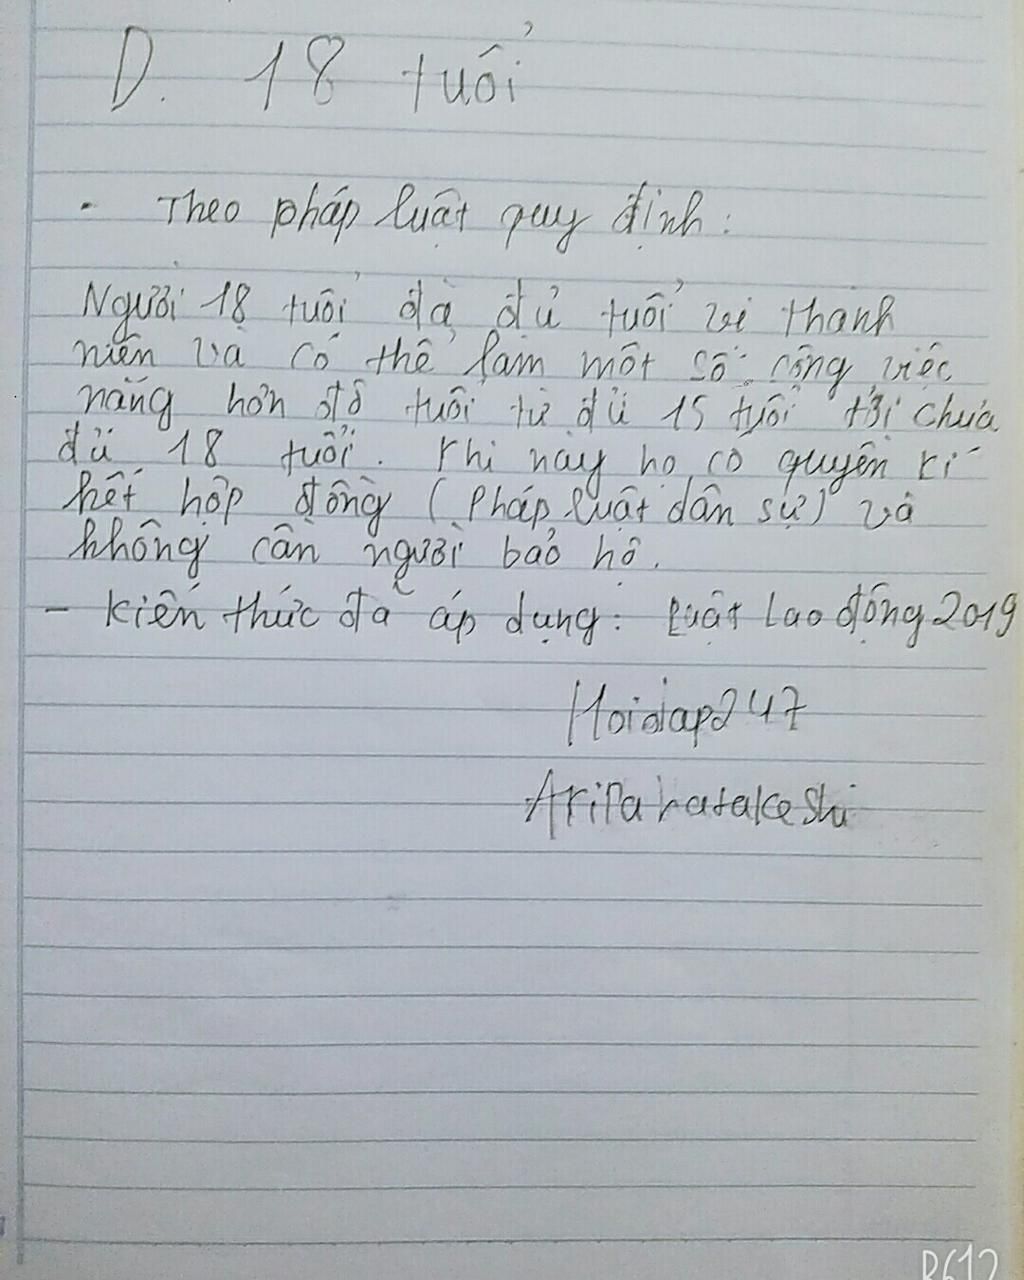 D. 18 tuổi
- Theo pháp luật quy định:
Người 18 tuổi đã đủ tuổi vị thành
niên và có thể làm một số công việc
nặng hơn độ tuổi từ đủ 15 tuổi tới chưa
đủ 18 tuổi. Khi này họ có quyền kí
kết hợp đồng (Pháp luật dân sự) và
không cần người bảo hộ.
- Kiến thức đã áp dụng: Luật Lao động 2019
Hoidap247
B612